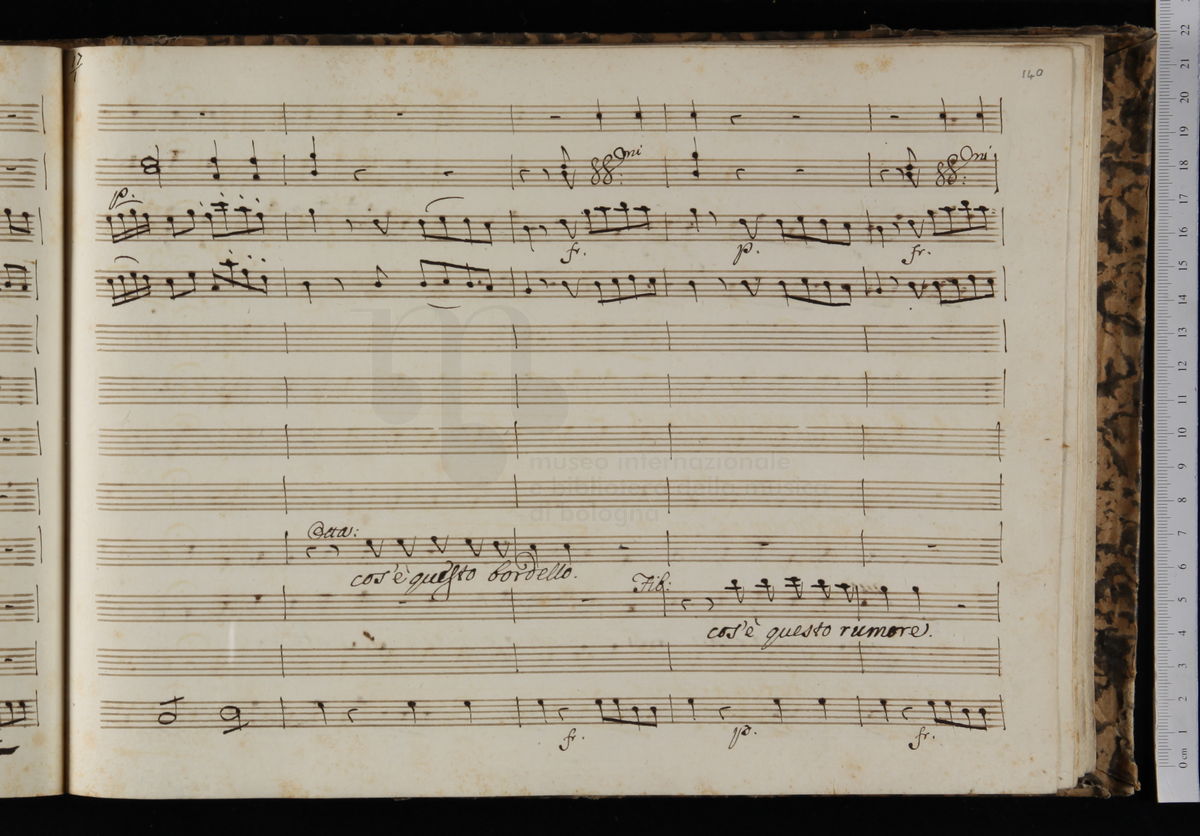 140
p.
fr.
p.
fr.
museo internazionale
di bologna
cos'è questo bordello.
Fib:
cos'è questo rumore.
fr.
p.
fr.
22
21
20
19
18
17
16
15
14
13
12
11
10
9
8
7
6
5
4
3
2
1
0 cm